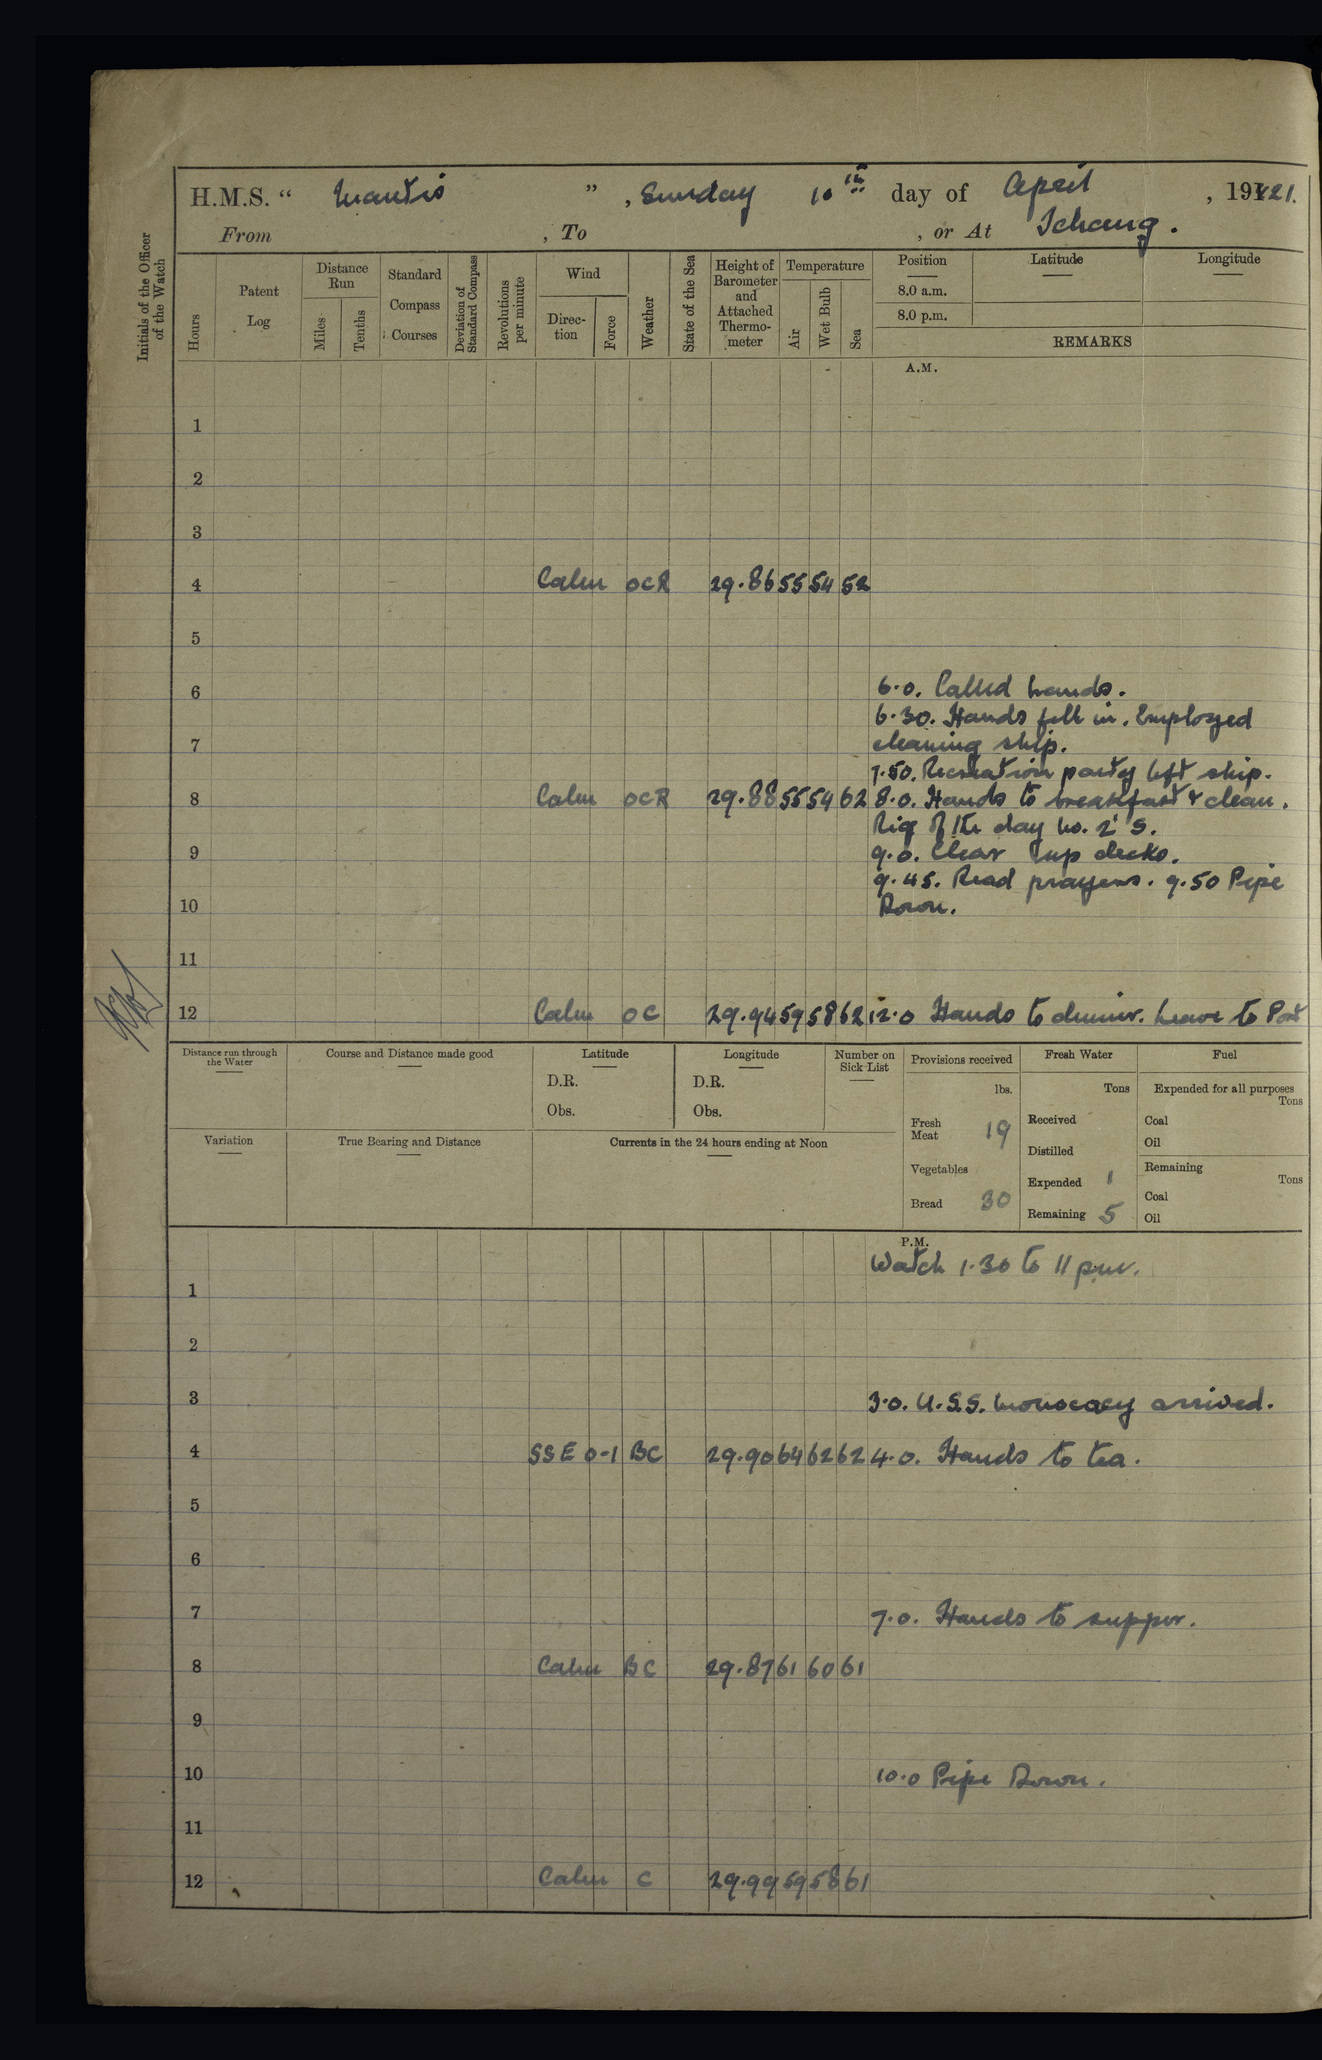 H.M.S. “ Mantis ” , Sunday 10th day of April , 1921.
From , To , or At Ichang.
Initials of the Officer of the Watch
Hours
Patent Log
Distance Run
Miles
Tenths
Standard Compass Courses
Deviation of Standard Compass
Revolutions per minute
Wind
Direction
Force
Weather
State of the Sea
Height of Barometer and Attached Thermometer
Temperature
Air
Wet Bulb
Sea
Position
Latitude
Longitude
8.0 a.m.
8.0 p.m.
REMARKS
A.M.
1
2
3
4 Calm OCR 29.86 55 54 52
5
6 6.0. Called hands.
6.30. Hands fell in. Employed
7 cleaning ship.
7.50. Recreation party left ship.
8 Calm OCR 29.88 55 54 62 8.0. Hands to breakfast & clean.
Rig of the day No. 2's.
9 9.0. Clear up decks.
9.45. Read prayers. 9.50 Pipe
10 Down.
11
12 Calm OC 29.94 59 58 62 12.0 Hands to dinner. Leave to Port
Distance run through the Water
Course and Distance made good
Latitude
D.R.
Obs.
Longitude
D.R.
Obs.
Number on Sick List
Provisions received
lbs.
Fresh Meat 19
Vegetables
Bread 30
Fresh Water
Tons
Received
Distilled
Expended 1
Remaining 5
Fuel
Expended for all purposes
Tons
Coal
Oil
Remaining
Tons
Coal
Oil
Variation
True Bearing and Distance
Currents in the 24 hours ending at Noon
P.M.
Watch 1.30 to 11 p.m.
1
2
3 3.0. U.S.S. Monocacy arrived.
4 SSE 0-1 BC 29.90 64 62 62 4.0. Hands to tea.
5
6
7 7.0. Hands to supper.
8 Calm BC 29.87 61 60 61
9
10 10.0 Pipe Down.
11
12 Calm C 29.99 59 58 61